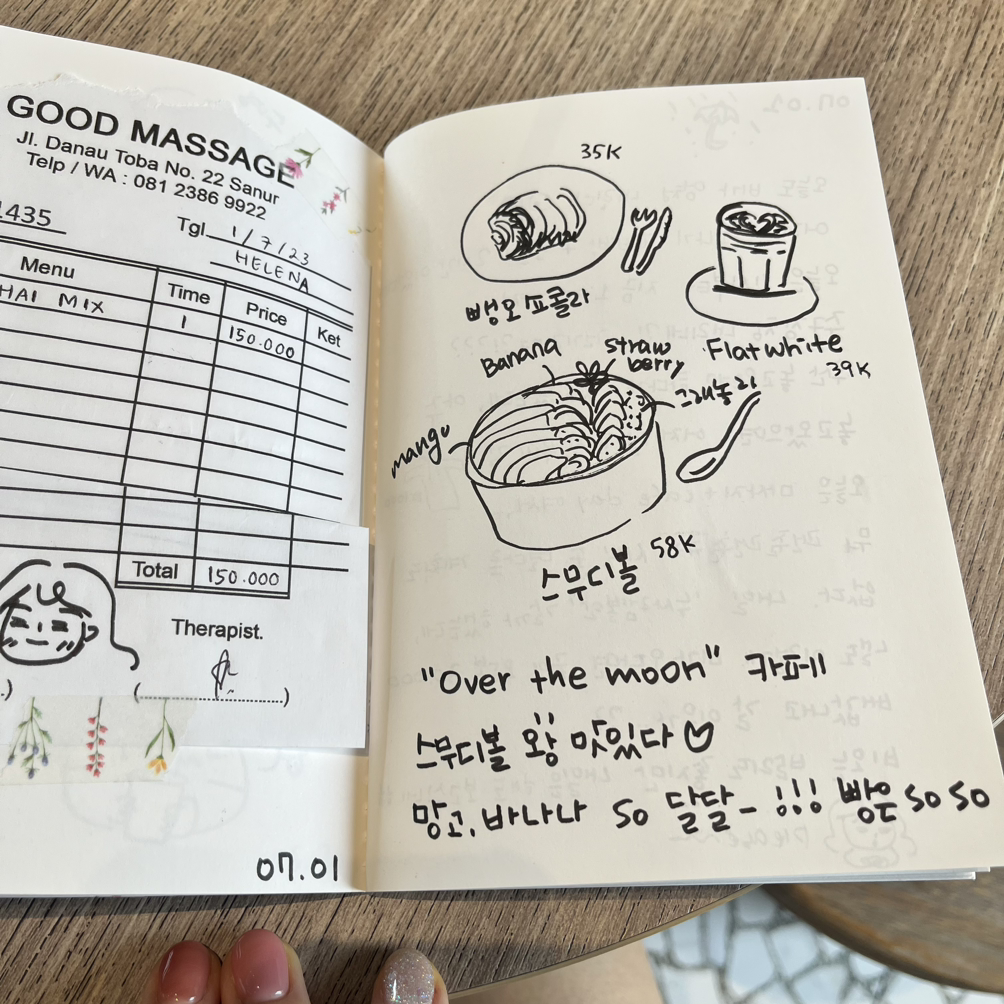 GOOD MASSAGE
Jl. Danau Toba No. 22 Sanur
Telp / WA : 081 2386 9922
1435
Tgl 1/7/23
HELENA
Menu Time Price Ket
HAI MIX 1 150.000
Total 150.000
Therapist.
(..........................)
07.01
35K
뺑오쇼콜라
Flat white
39K
Banana
straw
berry
그래놀라
mango
스무디볼 58K
"Over the moon" 카페
스무디볼 왕 맛있다♡
망고, 바나나 so 달달~ !!! 빵은 so so